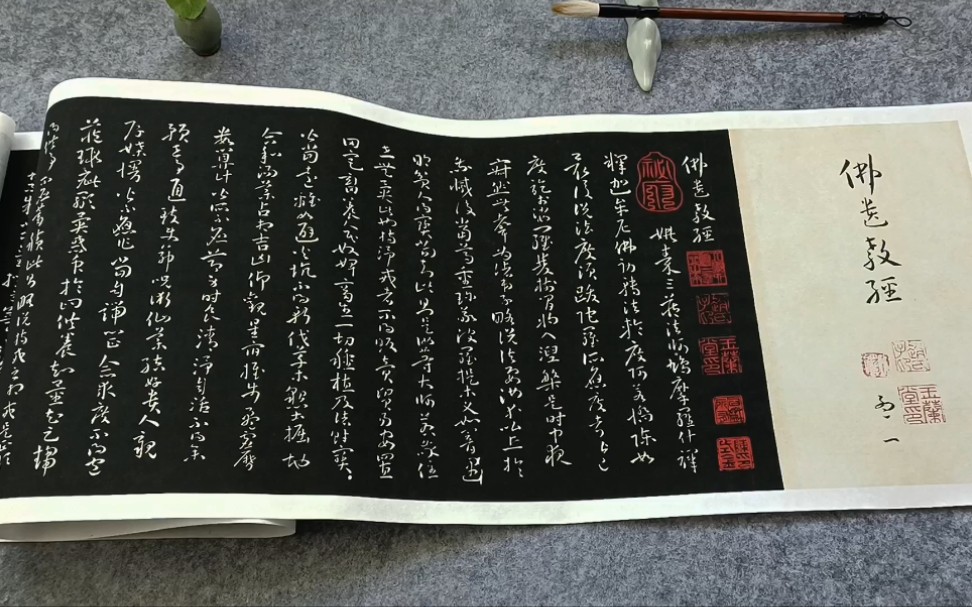 佛遺教經
玉蘭堂印
佛遺教經
玉蘭堂印
姚秦三藏法師鳩摩羅什譯
釋迦牟尼佛初轉法輪度阿若憍陳如
最後說法度須跋陀羅所應度者皆已
度訖於娑羅雙樹間將入涅槃是時中夜
寂然無聲為諸弟子略說法要汝等比丘於
我滅後當尊重珍敬波羅提木叉如闇遇
明貧人得寶當知此是汝等大師若我住
世無異此也持淨戒者不得販賣貿易安置
田宅畜養人民奴婢畜生一切種植及諸財寶
皆當遠離如避火坑不得斬伐草木墾土掘地
合和湯藥占相吉凶仰觀星宿推步盈虛
數算計皆所不應節身時食清淨自活不得參
預世事通致使命咒術仙藥結好貴人親
厚媟嫚皆不應作當自端正念求度不得苞
藏瑕疵顯異惑眾於四供養知量知足趣
得供事不應畜積此則略說持戒之相戒是